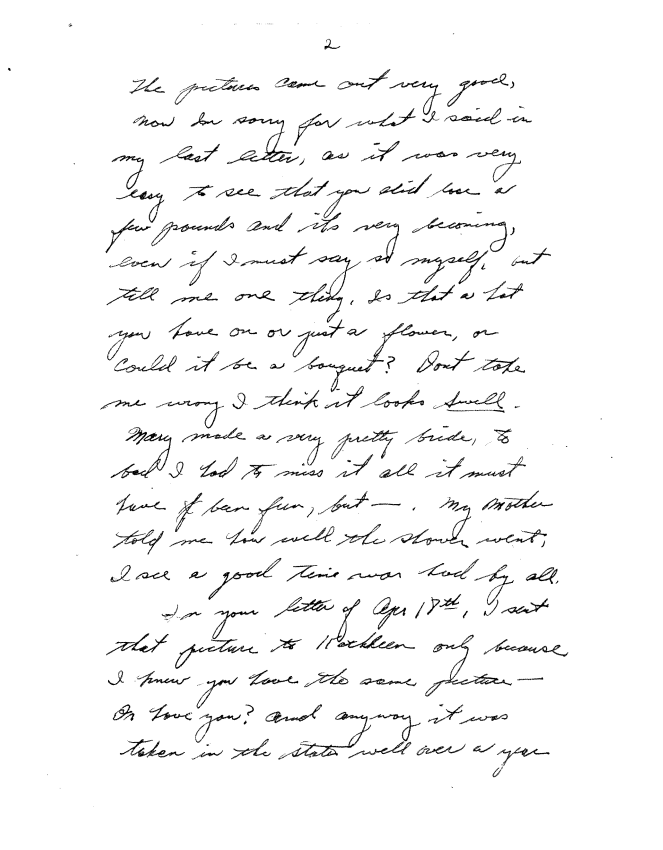 2
The pictures came out very good,
now Im sorry for what I said in
my last letter, as it was very
easy to see that you did lose a
few pounds and its very becoming,
even if I must say so myself, but
tell me one thing, Is that a hat
you have on or just a flower, or
could it be a bouquet? Dont take
me wrong I think it looks swell.
Mary made a very pretty bride, to
bad I had to miss it all it must
have of been fun, but — . My mother
told me how well the shower went,
I see a good time was had by all.
In your letter of Apr 17th, I sent
that picture to Kathleen only because
I knew you have the same picture —
Or have you? and anyway it was
taken in the states well over a year